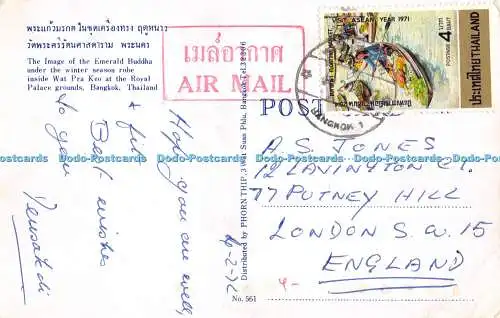 พระแก้วมรกต ในชุดเครื่องทรง ฤดูหนาว
วัดพระศรีรัตนศาสดาราม พระนคร
The Image of the Emerald Buddha
under the winter season robe
inside Wat Pra Keo at the Royal
Palace grounds, Bangkok, Thailand
เมล์อากาศ
AIR MAIL
VISIT ASEAN YEAR 1971
ประเทศไทย THAILAND
4 บาท BAHT
POSTAGE
POST
Hope you are well,
& fine
Best wishes
to you
6-2-72
Distributed by PHORNTHIP, 3 Wat Suan Phlu, Bangkok, Tel.
No. 561
A. S. JONES
12 LAVINGTON Ct.
77 PUTNEY HILL
LONDON S.W. 15
ENGLAND
Dodo-Postcards
Dodo-Postcards
Dodo-Postcards